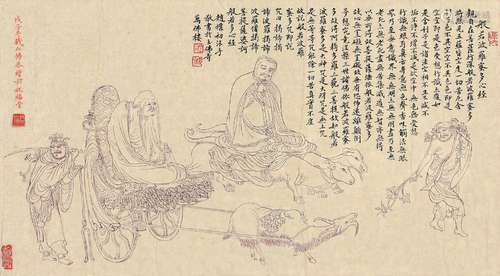 般若波羅蜜多心經
觀自在菩薩行深般若波羅蜜多
時照見五蘊皆空度一切苦厄舍
利子色不異空空不異色色即
是空空即是色受想行識亦復如
是舍利子是諸法空相不生不滅不
垢不淨不增不減是故空中無色無受想
行識無眼耳鼻舌身意無色聲香味觸法無眼
界乃至無意識界無無明亦無無明盡乃至無
老死亦無老死盡無苦集滅道無智亦無得
以無所得故菩提薩埵依般若波羅蜜多
故心無罣礙無罣礙故無有恐怖遠離顛倒
夢想究竟涅槃三世諸佛依般若波羅蜜
多故得阿耨多羅三藐三菩提故知般若
波羅蜜多是大神咒是大明咒是無上咒
是無等等咒能除一切苦真實不虛
故說般若波羅
蜜多咒即說
咒曰揭諦揭諦
波羅揭諦
波羅僧揭諦
菩提薩婆訶
般若多心經
敬書於
萬佛